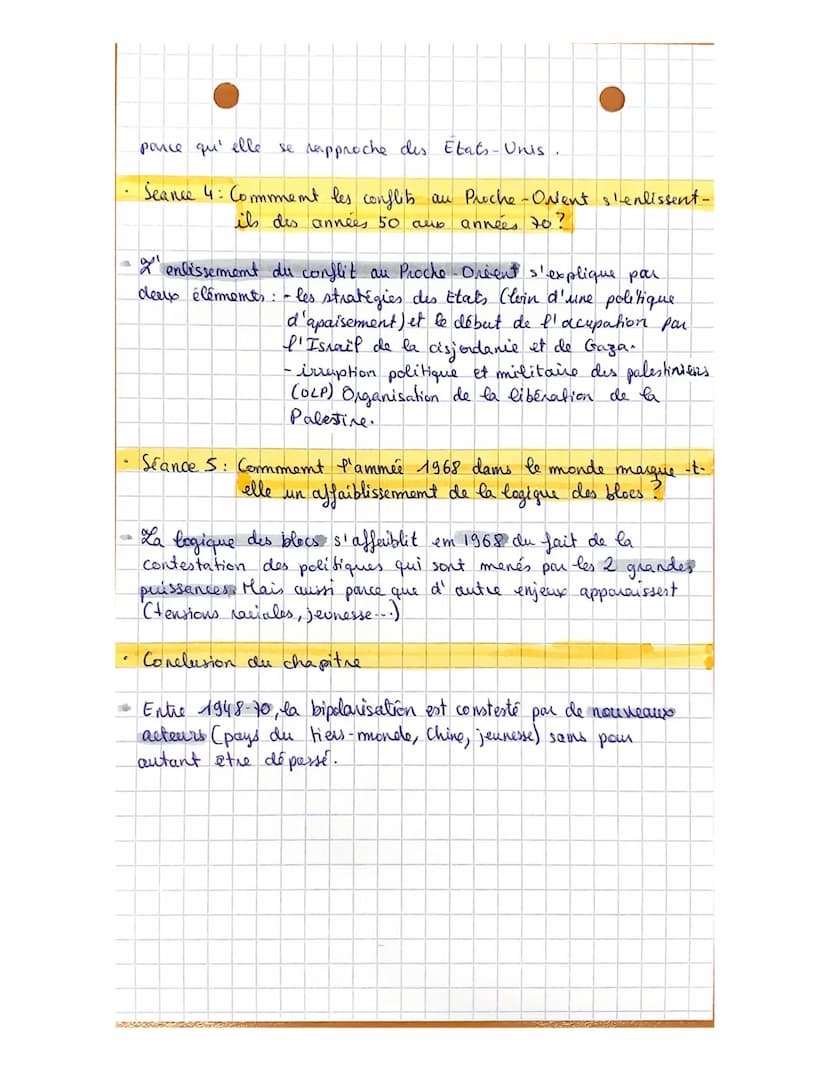 parce qu'elle se rapproche des États-Unis.
· Séance 4 : Comment les conflits au Proche-Orient s'enlissent-
ils des années 50 aux années 70 ?
- L'enlissement du conflit au Proche-Orient s'explique par
deux éléments : - les stratégies des États (loin d'une politique
d'apaisement) et le début de l'occupation par
l'Israël de la cisjordanie et de Gaza.
- irruption politique et militaire des palestiniens
(OLP) Organisation de la libération de la
Palestine.
· Séance 5 : Comment l'année 1968 dans le monde marque-t-
elle un affaiblissement de la logique des blocs ?
- La logique des blocs s'affaiblit en 1968 du fait de la
contestation des politiques qui sont menés par les 2 grandes
puissances. Mais aussi parce que d'autre enjeux apparaissent
(tensions raciales, jeunesse...)
· Conclusion du chapitre
- Entre 1948-70, la bipolarisation est constesté par de nouveaux
acteurs (pays du tiers-monde, Chine, jeunesse) sans pour
autant être dépassé.